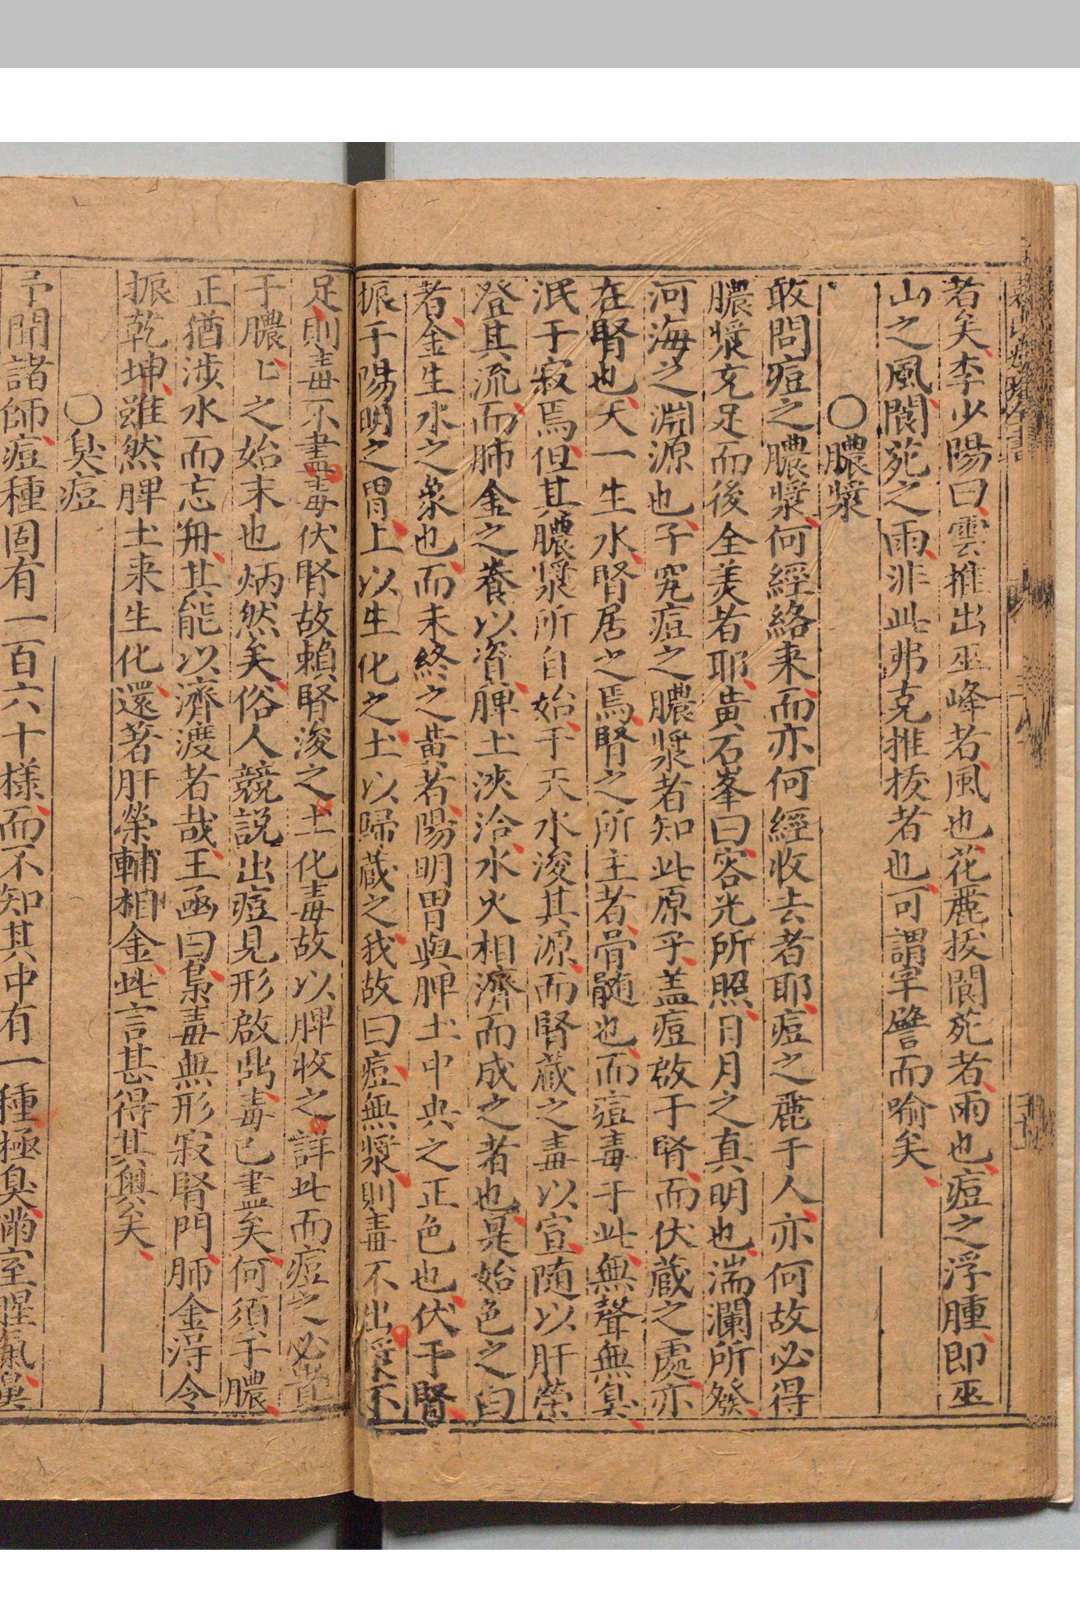 若矣李少陽曰雲推出巫峰者風也花麗拔閬苑者雨也痘之浮腫即巫
山之風閬苑之雨非此弗克推拔者也可謂罕譬而喻矣
〇膿漿
敢問痘之膿漿何經絡来而亦何經收去者耶痘之麗于人亦何故必得
膿漿充足而後全美者耶黄石峯曰容光所照日月之真明也湍瀾所發
河海之淵源也子究痘之膿漿者知此原乎盖痘啟于腎而伏藏之處亦
在腎也天一生水腎居之焉腎之所主者骨髄也而痘毒于此無聲無臭
泯于寂焉但其膿漿所自始于天水浚其源而腎藏之毒以宣随以肝榮
登其流而肺金之養以資脾土浹洽水火相濟而成之者也是始色之白
者金生水之象也而未終之黄者陽明胃與脾土中央之正色也伏于腎
振于陽明之胃上以生化之土以歸藏之我故曰痘無漿則毒不出漿不
足則毒不盡毒伏腎故賴腎浚之土化毒故以脾收之詳此而痘之必貴
于膿匕之始末也炳然矣俗人競説出痘見形啟齿毒已盡矣何須于膿
正猶涉水而忘舟其能以濟渡者哉王函曰梟毒無形寂腎門肺金浮令
振乾坤雖然脾土来生化還著肝榮輔相金此言甚得其奥矣
〇臭痘
予聞諸師痘種固有一百六十様而不知其中有一種極臭滿室腥氣